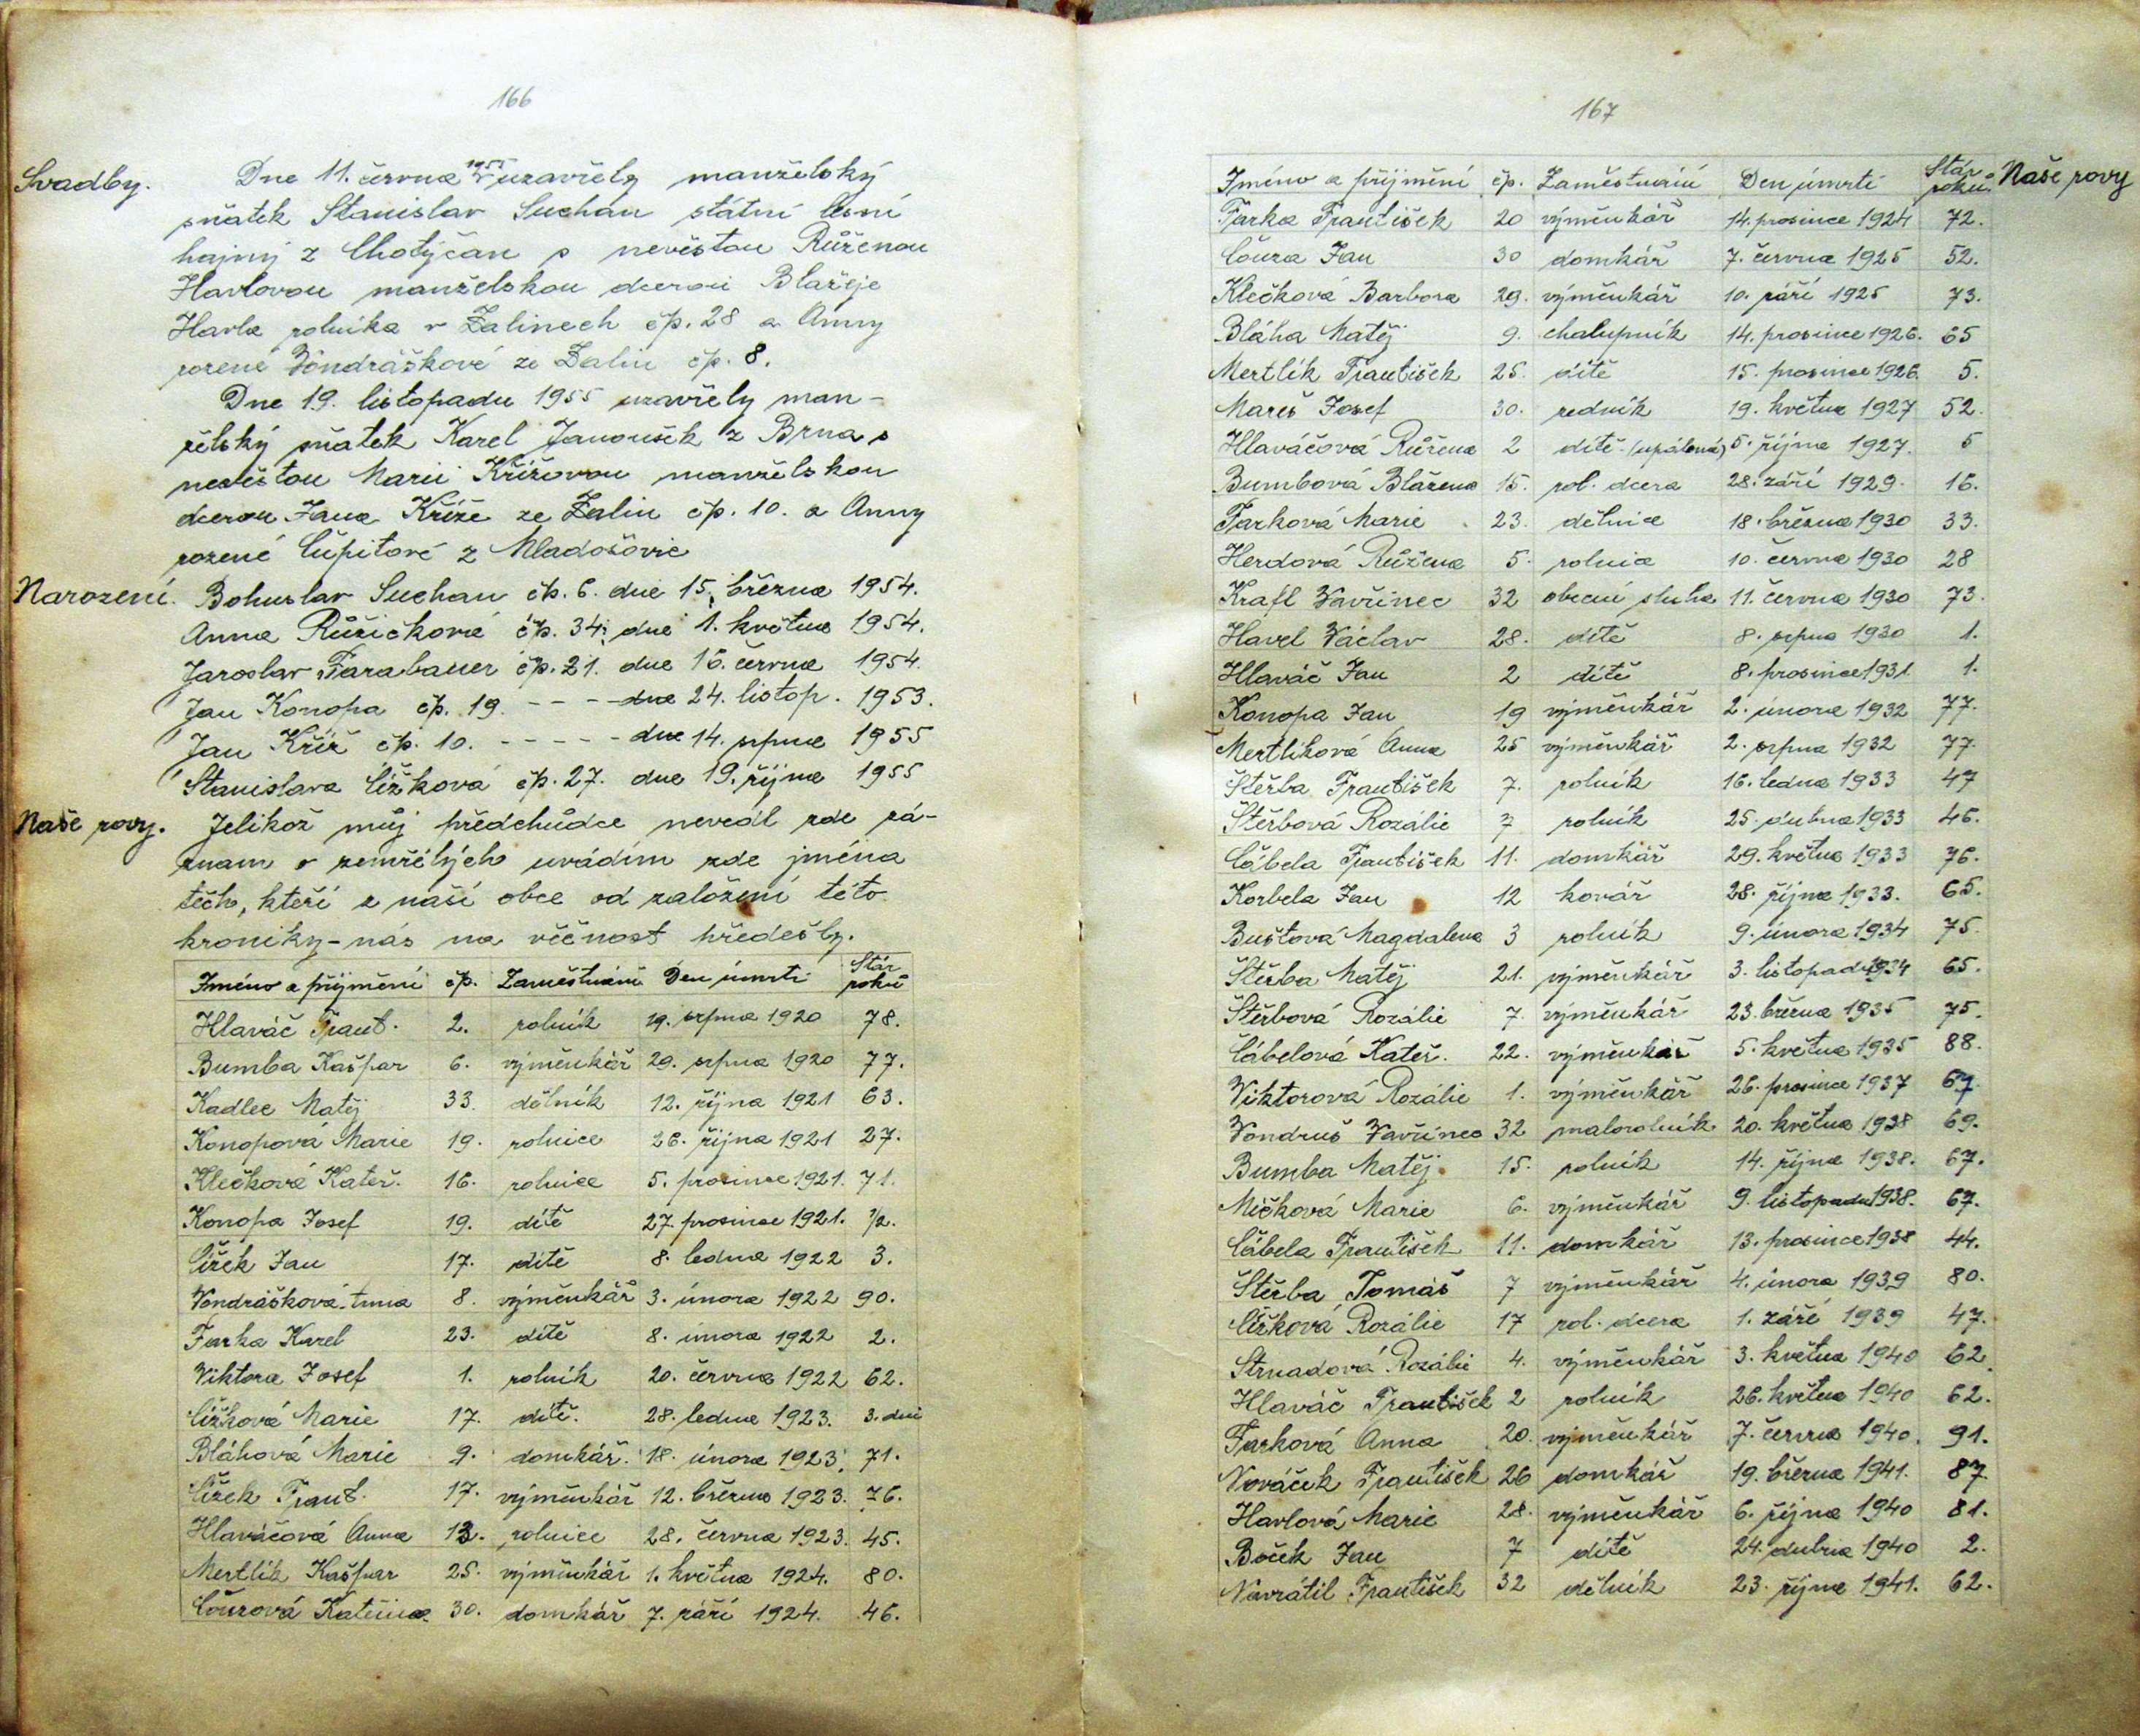 166
Svadby.
Dne 11. června 1955 uzavřely manželský
sňatek Stanislav Suchan státní lesní
hajný z Chotýčan s nevěstou Růženou
Havlovou manželskou dcerou Blažeje
Havla rolníka v Zalinech čp. 28 a Anny
rozené Vondráškové ze Zalin čp. 8.
Dne 19. listopadu 1955 uzavřely man-
želský sňatek Karel Janoušek z Brna s
nevěstou Marii Křížovou manželskou
dcerou Jana Kříže ze Zalin čp. 10. a Anny
rozené Čupitové z Mladošovic
Narození. Bohuslav Suchan čp. 6. dne 15. března 1954.
Anna Růžičková čp. 34. dne 1. května 1954.
Jaroslav Farabauer čp. 21. dne 16. června 1954.
Jan Konopa čp. 19. - - - dne 24. listop. 1953.
Jan Kříž čp. 10. - - - - - dne 14. srpna 1955
Stanislava Čížková čp. 27. dne 19. října 1955
Naše rovy. Jelikož můj předchůdce nevedl zde zá-
znam o zemřelých uvádím zde jména
těch, kteří z naší obce od založení této
kroniky - nás na věčnost předešly.
Jméno a příjmení čp. Zaměstnání Den úmrtí Stár roků
Hlaváč Frant. 2. rolník 19. srpna 1920 78.
Bumba Kašpar 6. výměnkář 29. srpna 1920 77.
Kadlec Matěj 33. dělník 12. října 1921 63.
Konopová Marie 19. rolnice 26. října 1921 27.
Klečková Kateř. 16. rolnice 5. prosince 1921. 71.
Konopa Josef 19. dítě 27. prosince 1921. 1/2.
Čížek Jan 17. dítě 8. ledna 1922 3.
Vondrášková 8. výměnkář 3. února 1922 90.
Farka Karel 23. dítě 8. února 1922 2.
Viktora Josef 1. rolník 20. června 1922 62.
Čížková Marie 17. dítě. 28. ledna 1923. 3. dni
Bláhová Marie 9. domkář. 18. února 1923. 71.
Čížek Frant. 17. výměnkář 12. března 1923. 76.
Hlaváčová Anna rolnice 28. června 1923. 45.
Mertlík Kašpar 25. výměnkář 1. května 1924. 80.
Čouzová Kateřina. 30. domkář 7. září 1924. 46.
167
Naše rovy
Jméno a příjmení čp. Zaměstnání Den úmrtí Stár roků.
Farka František 20 výměnkář 14. prosince 1924 72.
Čouza Jan 30 domkář 7. června 1925 52.
Klečková Barbora 29. výměnkář 10. září 1925 73.
Bláha Matěj 9. chalupník 14. prosince 1926. 65
Mertlík František 25. dítě 15. prosince 1926. 5.
Mareš Josef 30. zedník 19. května 1927 52.
Hlaváčová Růžena 2 dítě (upálená) 5. října 1927. 5
Bumbová Blažena 15. rol. dcera 28. září 1929. 16.
Farková Marie 23. dělnice 18. března 1930 33.
Herdová Růžena 5. rolnice 10. června 1930 28
Krafl Vavřinec 32 obecní sluha 11. června 1930 73.
Havel Václav 28. dítě 8. srpna 1930 1.
Hlaváč Jan 2 dítě 8. prosince 1931 1.
Konopa Jan 19 výměnkář 2. února 1932 77.
Mertlíková Anna 25 výměnkář 2. srpna 1932 77.
Štěrba František 7. rolník 16. ledna 1933 47
Štěrbová Rozálie 7 rolník 25. dubna 1933 46.
Čábela František 11. domkář 29. května 1933 76.
Korbela Jan 12 kovář 28. října 1933. 65.
Buštová Magdalena 3 rolník 9. února 1934 75.
Štěrba Matěj 21. výměnkář 3. listopadu 1934 65.
Štěrbová Rozálie 7. výměnkář 23. března 1935 75.
Čábelová Kateř. 22. výměnkář 5. května 1935 88.
Viktorová Rozálie 1. výměnkář 26. prosince 1937 67.
Vondruš Vavřinec 32 malorolník 20. května 1938 69.
Bumba Matěj. 15. rolník 14. října 1938. 67.
Mičková Marie 6. výměnkář 9. listopadu 1938. 67.
Čábela František 11. domkář 13. prosince 1938 44.
Štěrba Tomáš 7 výměnkář 4. února 1939 80.
Čížková Rozálie 17 rol. dcera 1. září 1939 47.
Strnadová Rozálie 4. výměnkář 3. května 1940 62.
Hlaváč František 2 rolník 26. května 1940 62.
Farková Anna 20. výměnkář 7. června 1940. 91.
Nováček František 26 domkář 19. března 1941. 87.
Havlová Marie 28. výměnkář 6. října 1940 81.
Boček Jan 7 dítě 24. dubna 1940 2.
Navrátil František 32 dělník 23. října 1941. 62.